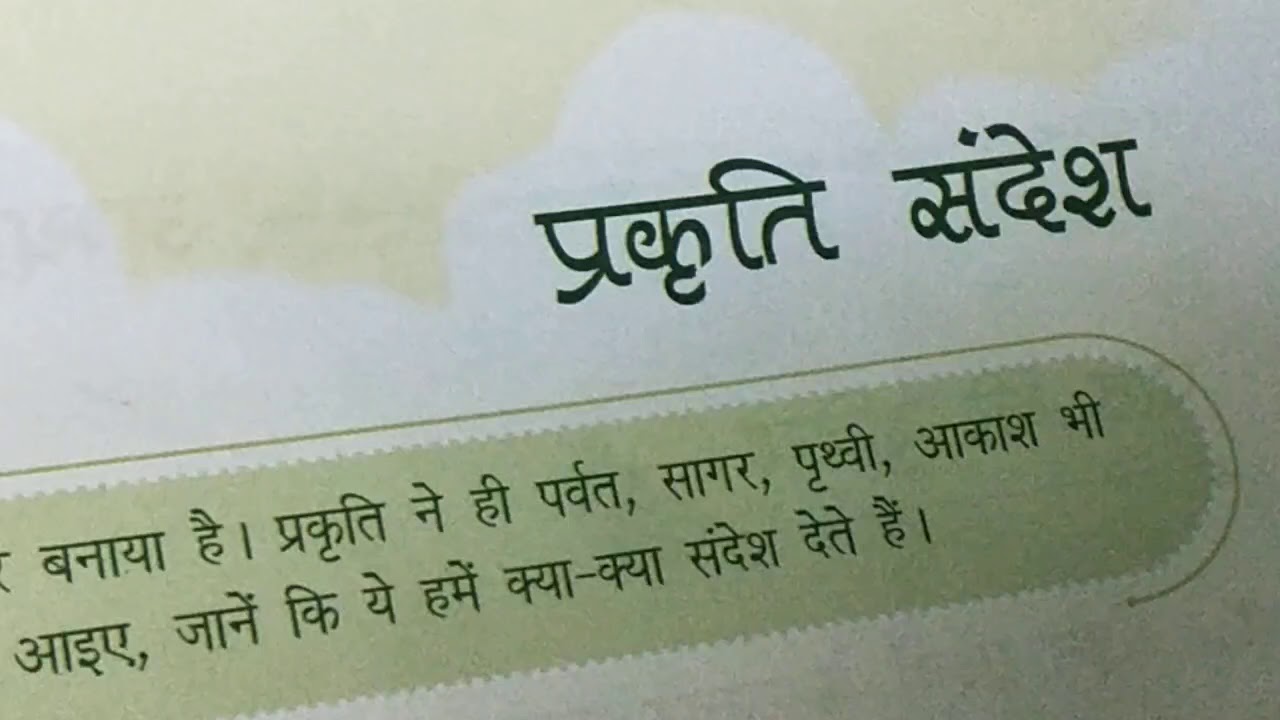 प्रकृति संदेश
बनाया है। प्रकृति ने ही पर्वत, सागर, पृथ्वी, आकाश भी
आइए, जानें कि ये हमें क्या-क्या संदेश देते हैं।